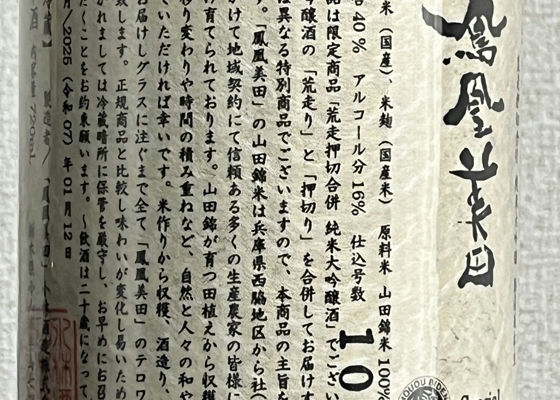 鳳凰美田
米(国産)、米麹(国産米) 原料米 山田錦米 100%
合 40% アルコール分 16% 仕込号数 10
品は限定商品「荒走押切合併 純米大吟醸酒」でござい
吟醸酒の「荒走り」と「押切り」を合併してお届けす
は異なる特別商品でございますので、本商品の主旨を
。「鳳凰美田」の山田錦米は兵庫県西脇地区から社(
かけて地域契約にて信頼ある多くの生産農家の皆様に
育てられております。山田錦が育つ田植えから収穫
移り変わりや時間の積み重ねなど、自然と人々の和や
ていただければ幸いです。米作りから収穫、酒造り、
お届けしグラスに注ぐまで全て「鳳凰美田」のテロワ
致します。正規商品と比較し味わいが変化し易いため
かれましては冷蔵暗所に保管を厳守し、お早めにお召
だくことをお約束願います。〜飲酒は二十歳になって
月/2025 (令和07)年 01月12日
冷蔵】 製造者/「鳳凰美田」小林酒造株式
酒 内容量 720mL
HOUOU BIDEN
Special